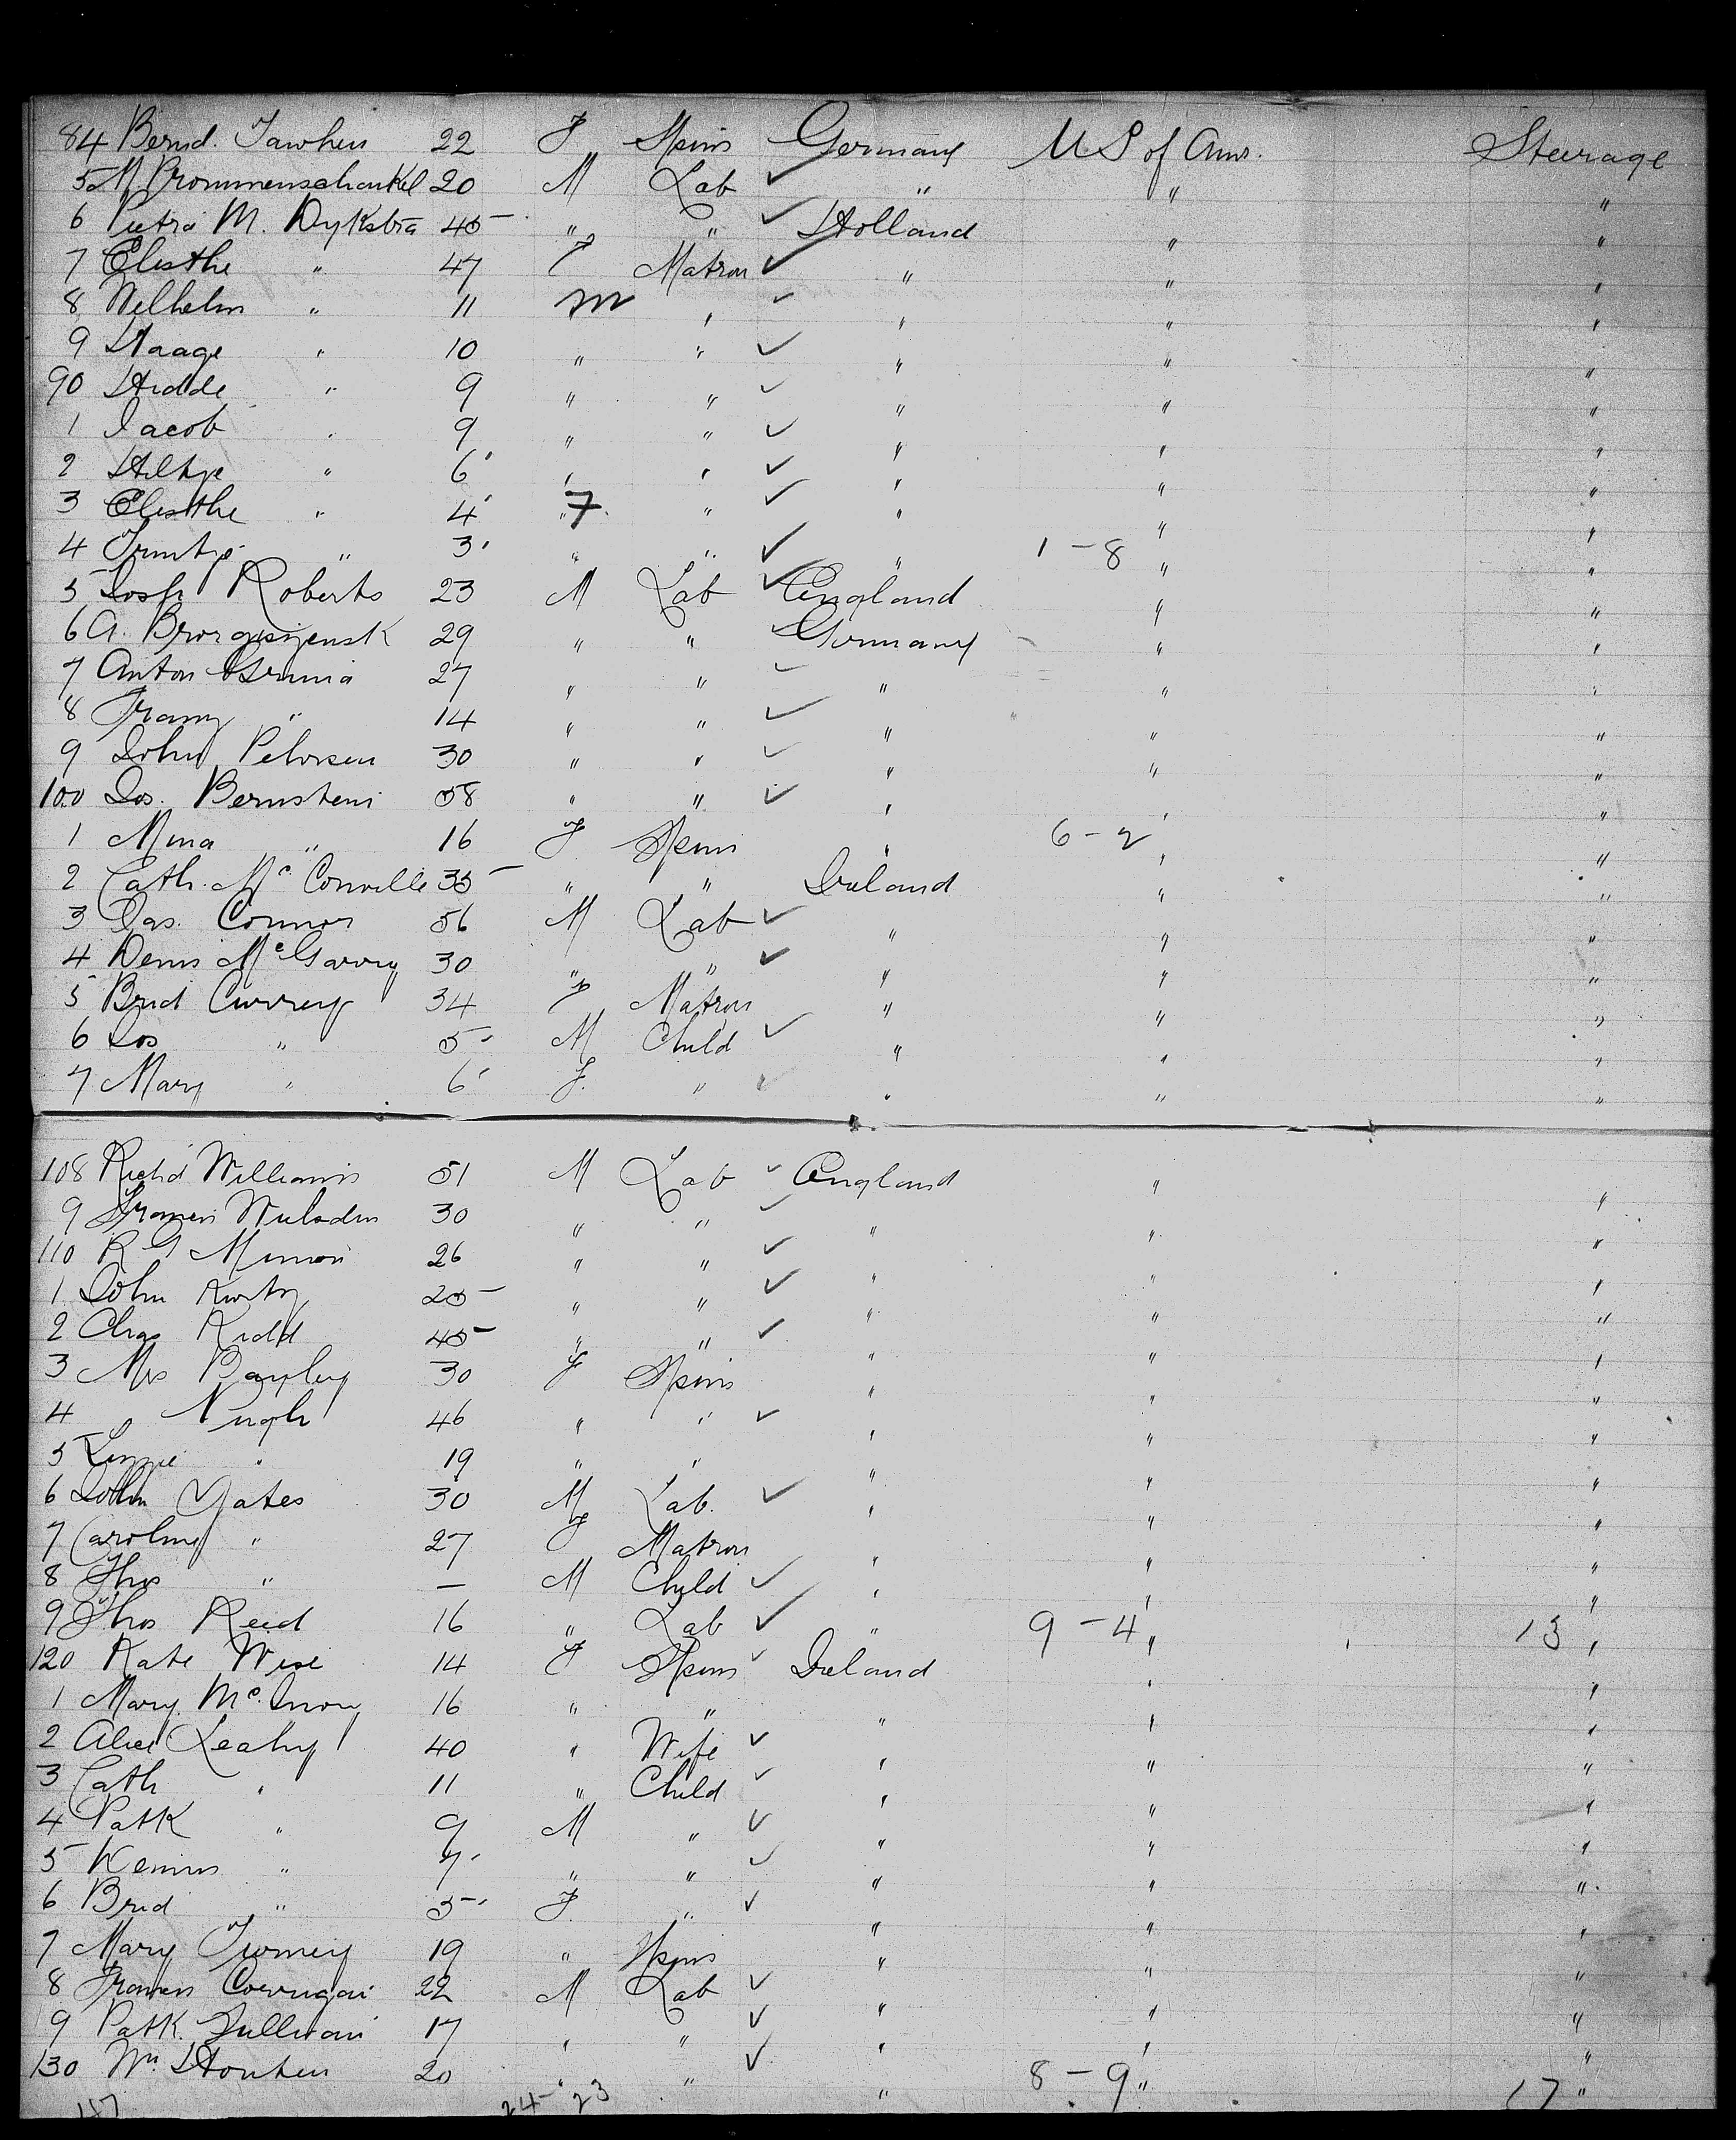 84 Bernd. Tawhen 22 F Spins Germany U S of Amr. Steerage
5 M Brommenschenkel 20 M Lab ✓ " " "
6 Pietra M. Dykstra 45 " " ✓ Holland " "
7 Elisthe " 47 F Matron ✓ " " "
8 Wilhelm " 11 M " ✓ " " "
9 Haage " 10 " " ✓ " " "
90 Hidde " 9 " " ✓ " " "
1 Jacob " 9 " " ✓ " " "
2 Hiltje " 6 " " ✓ " " "
3 Elisthe " 4 F " ✓ " " "
4 Trintje " 3 " " ✓ " 1 - 8 " "
5 Josh Roberts 23 M Lab ✓ England " "
6 A. 29 " " ✓ Germany " "
7 Anton 27 " " ✓ " " "
8 Franz " 14 " " ✓ " " "
9 John Petersen 30 " " ✓ " " "
100 Jos. Bernstein 58 " " ✓ " " "
1 Mina " 16 F Spins " 6 - 2 " "
2 Cath. Mc Conville 35 " " Ireland " "
3 Jas. Connor 56 M Lab ✓ " " "
4 Denis McGarry 30 " " ✓ " " "
5 Brid Currey 34 F Matron " " "
6 Jos " 5 M Child ✓ " " "
7 Mary " 6 F. " ✓ " " "
108 Richd Williams 51 M Lab ✓ England " "
9 Francis 30 " " ✓ " " "
110 R G 26 " " ✓ " " "
1 John Kurtz 25 " " ✓ " " "
2 Chas Kidd 45 " " ✓ " " "
3 Mrs Bayley 30 F Spins " " "
4 " Pugh 46 " " ✓ " " "
5 Lizzie " 19 " " " " "
6 John Yates 30 M Lab. ✓ " " "
7 Caroline " 27 F Matron " " "
8 Thos " — M Child ✓ " " "
9 Thos Reid 16 " Lab ✓ " 9 - 4 " 13 "
120 Kate Wise 14 F Spins ✓ Ireland " "
1 Mary Mc. 16 " " " " "
2 Alice Leahy 40 " Wife ✓ " " "
3 Cath " 11 " Child ✓ " " "
4 Patk " 9 M " ✓ " " "
5 " 7 " " ✓ " " "
6 Brid " 5 F. " ✓ " " "
7 Mary Twomey 19 " Spins " " "
8 Francis Corrigan 22 M Lab ✓ " " "
9 Patk. Sullivan 17 " " ✓ " " "
130 Wm. 20 " " ✓ " 8 - 9 " 17 "
47 24 - 23